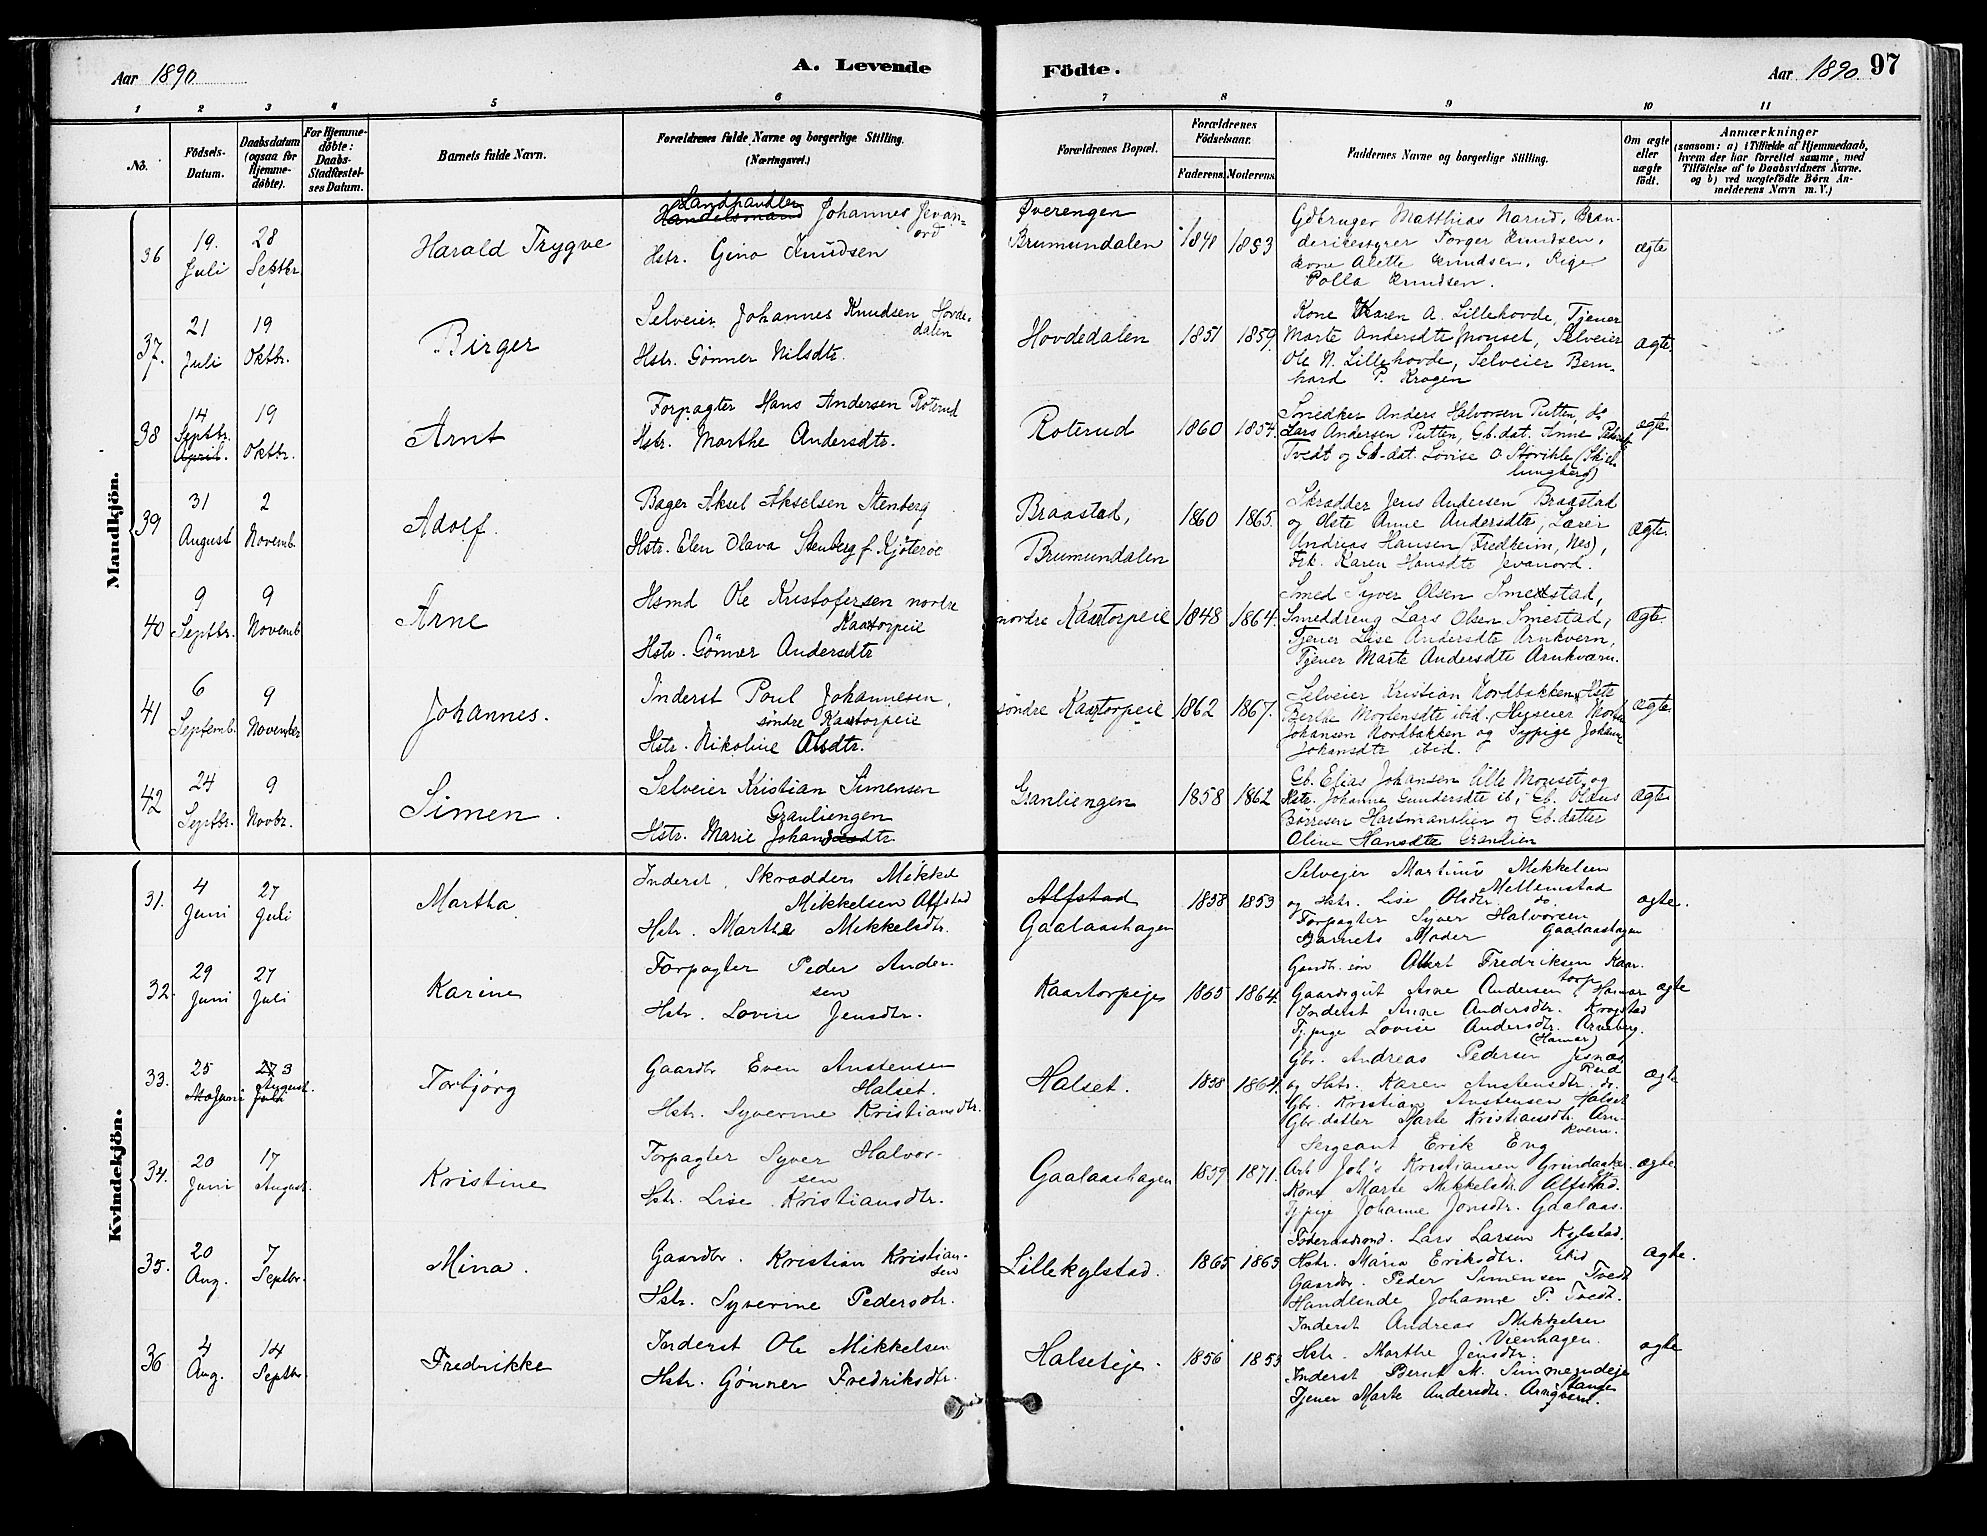 Aar 1890.
A. Levende
Födte.
Aar 1890.
97
1 2 3 4 5 6 7 8 9 10 11
No.
Födsels-
Datum.
Daabsdatum
(ogsaa for
Hjemme-
döbte).
For Hjemme-
döbte:
Daabs-
Stadfæstel-
ses Datum.
Barnets fulde Navn.
Forældrenes fulde Navne og borgerlige Stilling.
(Næringsvei.)
Forældrenes Bopæl.
Forældrenes
Födselsaar.
Faderens.
Moderens.
Faddernes Navne og borgerlige Stilling.
Om ægte
eller
uægte
födt.
Anmærkninger
(saasom: a) i Tilfælde af Hjemmedaab,
hvem der har forrettet samme, med
Tilföielse af to Daabsvidners Navne.
og b) ved uægtefödte Börn An-
melderens Navn m. V.)
Mandkjön.
36
19.
Juli
28
Septbr
Harald Trygve
Landhandler
Handelsmand Johannes Jevan-
ord
Hstr. Gina Knudsen
Øverengen
Brumundalen
1848
1853
Gdbruger Matthias Narud, Bran-
deribestyrer Torger Knudsen,
Kone Alette Knudsen, Pige
Polla Knudsen.
ægte
37.
21
Juli
19
Oktbr.
Birger
Selveier Johannes Knudsen Hovde-
dalen
Hstr. Gønner Nilsdtr.
Hovdedalen
1851
1859.
Kone Karen A. Lillehovde, Tjener
Marte Andersdtr Monset, Selveier
Ole N. Lillehovde, Selveier Bern-
hard P. Krogen
ægte.
38
14
Septbr.
April.
19
Oktbr.
Arnt
Forpagter Hans Andersen Roterud
Hstr. Marthe Andersdtr.
Roterud
1860
1854.
Smedker Anders Halvorsen Putten, do
Lars Andersen Putten, Gb.dat. Anne
Tvedt og Gb-dat. Lovise O. Storihle
ægte.
39
31
August
2
Novemb.
Adolf.
Bager Aksel Akselsen Stenberg
Hstr. Elen Olava Stenberg f. Kjöteröe
Braastad,
Brumundalen
1860
1865.
Skrædder Jens Andersen Braastad
og Hstr Anne Andersdtr, Lærer
Andreas Hansen (Fredheim, Nes),
Frk. Karen Hansdtr Jevanord.
ægte.
40
9
Septbr.
9
Novemb
Arne
Hsmd Ole Kristofersen nordre
Kaatorpeie
Hstr. Gønner Andersdtr
nordre Kaatorpeie
1848
1864.
Smed Syver Olsen Smestad,
Smeddreng Lars Olsen Smestad,
Tjener Lise Andersdtr Arnkvern,
Tjener Marte Andersdtr Arnkværn.
ægte.
41
6
Septemb.
9
November
Johannes.
Inderst Poul Johannesen,
søndre Kaatorpeie
Hstr. Nikoline Olsdtr.
søndre Kaatorpeie
1862
1867.
Selveier Kristian Nordbakken, Hstr
Berthe Mortensdtr ibid.,
Johansen Nordbakken og Sypige Johanne
Johansdtr ibid.
ægte.
42
24
Septbr.
9
Novbr.
Simen.
Selveier Kristian Simensen
Granliengen
Hstr. Marie Johansdtr
Granliengen
1858
1862
Gb. Elias Johansen Lille Monset og
Hstr. Johanne Gundersdtr ib., Gb. Olaus
Børresen Harsmanslien og Gb.datter
Oline Hansdtr Granlien
ægte
Kvindekjön.
31.
4
Juni
27
Juli
Martha
Inderst, Skrædder Mikkel
Mikkelsen Alfstad
Hstr. Marthe Mikkelsdtr.
Alfstad
Gaalaashagen
1858
1853
Selvejer Martinus Mikkelsen
Mellemstad
og Hstr. Lise Olsdtr. do.
Forpagter Syver Halvorsen
Gaalaashagen
Barnets Moder
ægte.
32.
29
Juni
27
Juli
Karine
Forpagter Peder Ander-
sen
Hstr. Lovise Jensdtr.
Kaatorpeje
1865
1864.
Gaardbr. søn Albert Fredriksen Kaa-
torp
Gaardsgut Arne Andersen, Hamar
Inderst Anne Andersdtr. Krogstad
Tj.pige Lovise Andersdtr. Arneberg.
(Hamar)
ægte
33.
25
Maj Juni
27 3
August.
Juli
Torbjørg
Gaardbr Even Austensen
Halset.
Hstr. Syverine Kristiansdtr.
Halset.
1858
1864.
Gbr. Andreas Pedersen Jesnæs
Rud
og Hstr. Karen Austensdtr. do.
Gbr. Kristian Austensen Halset
Gbr.datter Marte Kristiansdtr. Arn-
kvern.
ægte
34.
20
Juni
17
August.
Kristine
Forpagter Syver Halvor-
sen
Hstr. Lise Kristiansdtr.
Gaalaashagen
1859
1871.
Sergeant Erik Eng
Arb. Johs Kristiansen Grindaaker.
Kone Marte Mikkelsdtr. Alfstad.
Tj.pige Johanne Jonsdtr. Gaalaas.
ægte.
35.
20
Aug.
7
Septbr.
Mina.
Gaardbr. Kristian Kristian-
sen
Hstr. Syverine Pedersdtr.
Lillekylstad.
1865
1863
Føderaadsmd. Lars Larsen Kylstad.
Hstr. Maria Eriksdtr. ibid
Gaardbr. Peder Simensen Tvedt
Handlende Johanne P. Tvedt.
ægte.
36
4
Aug.
14
Septbr.
Fredrikke
Inderst Ole Mikkelsen
Hstr. Gønner Fredriksdtr.
Halseteje.
1856
1853
Inderst Andreas Mikkelsen
Vienhagen.
Hstr. Marthe Jensdtr.
Inderst Bernt M. Simmenseje
Vang
Tjener Marte Andersdtr. Arnqvern.
ægte